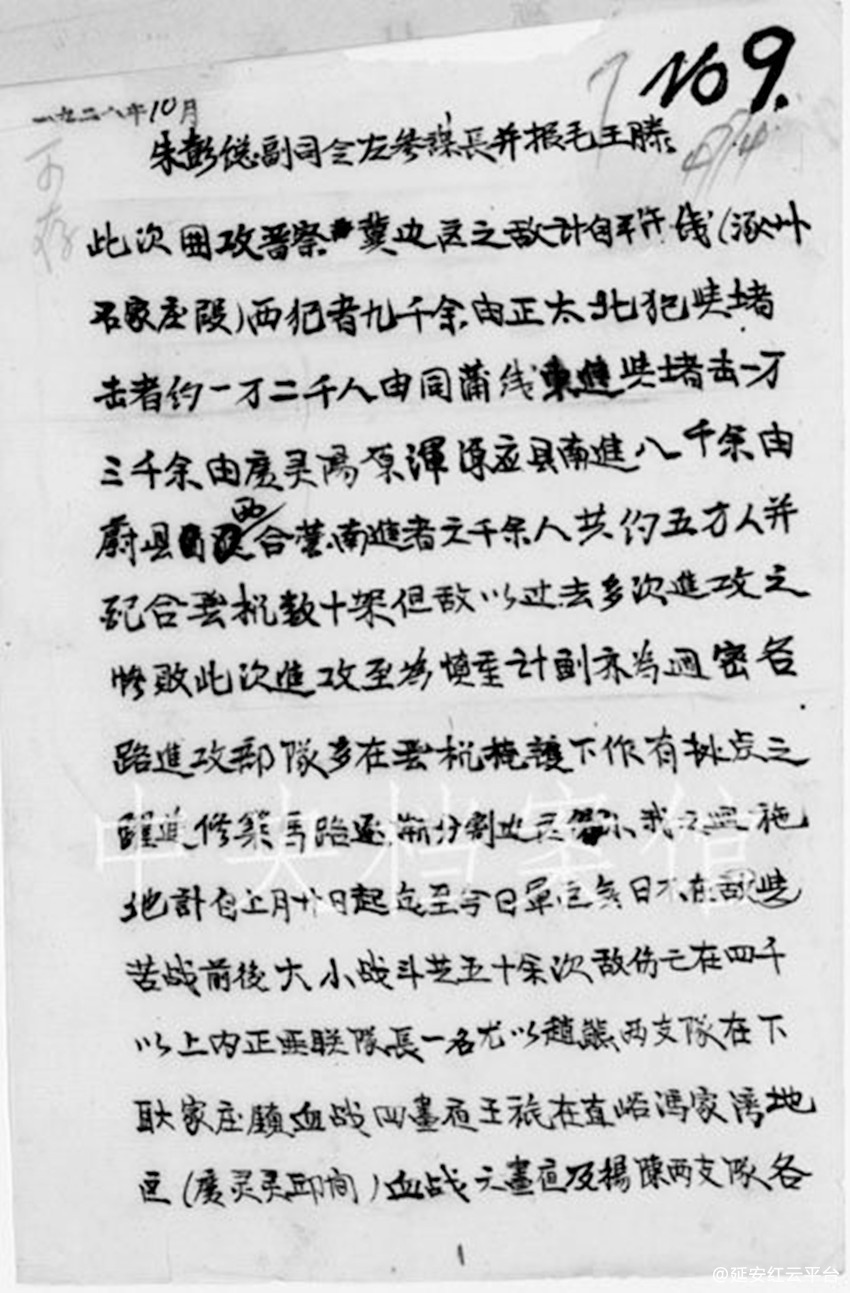 No 9.
一九三八年10月
朱彭总副司令左参谋長并报毛王滕：
此次围攻晋察冀边区之敌计自平汉线（涿州
石家庄段）西犯者九千余由正太北犯与堵
击者约一万二千人由同蒲线東進与堵击一万
三千余由广灵陽原渾源应县南進八千余由
蔚县西合营南進者六千余人共约五万人并
配合飞机数十架但敌以过去多次進攻之
惨败此次進攻至为慎重计划亦为週密各
路進攻部隊多在飞机掩護下作有据点之
躍進修築馬路逐渐分割边区缩小我之
地計自上月廿日起迄至今日軍区無日不在敌
苦战前後大小战斗共五十余次敌伤亡在四千
以上内正联隊長一名尤以趙熊两支隊在下
耿家庄鎮血战四晝夜王旅在直峪馮家湾地
区（广灵灵邱间）血战六晝夜及楊陳两支队各
1
中央档案馆
@延安红云平台